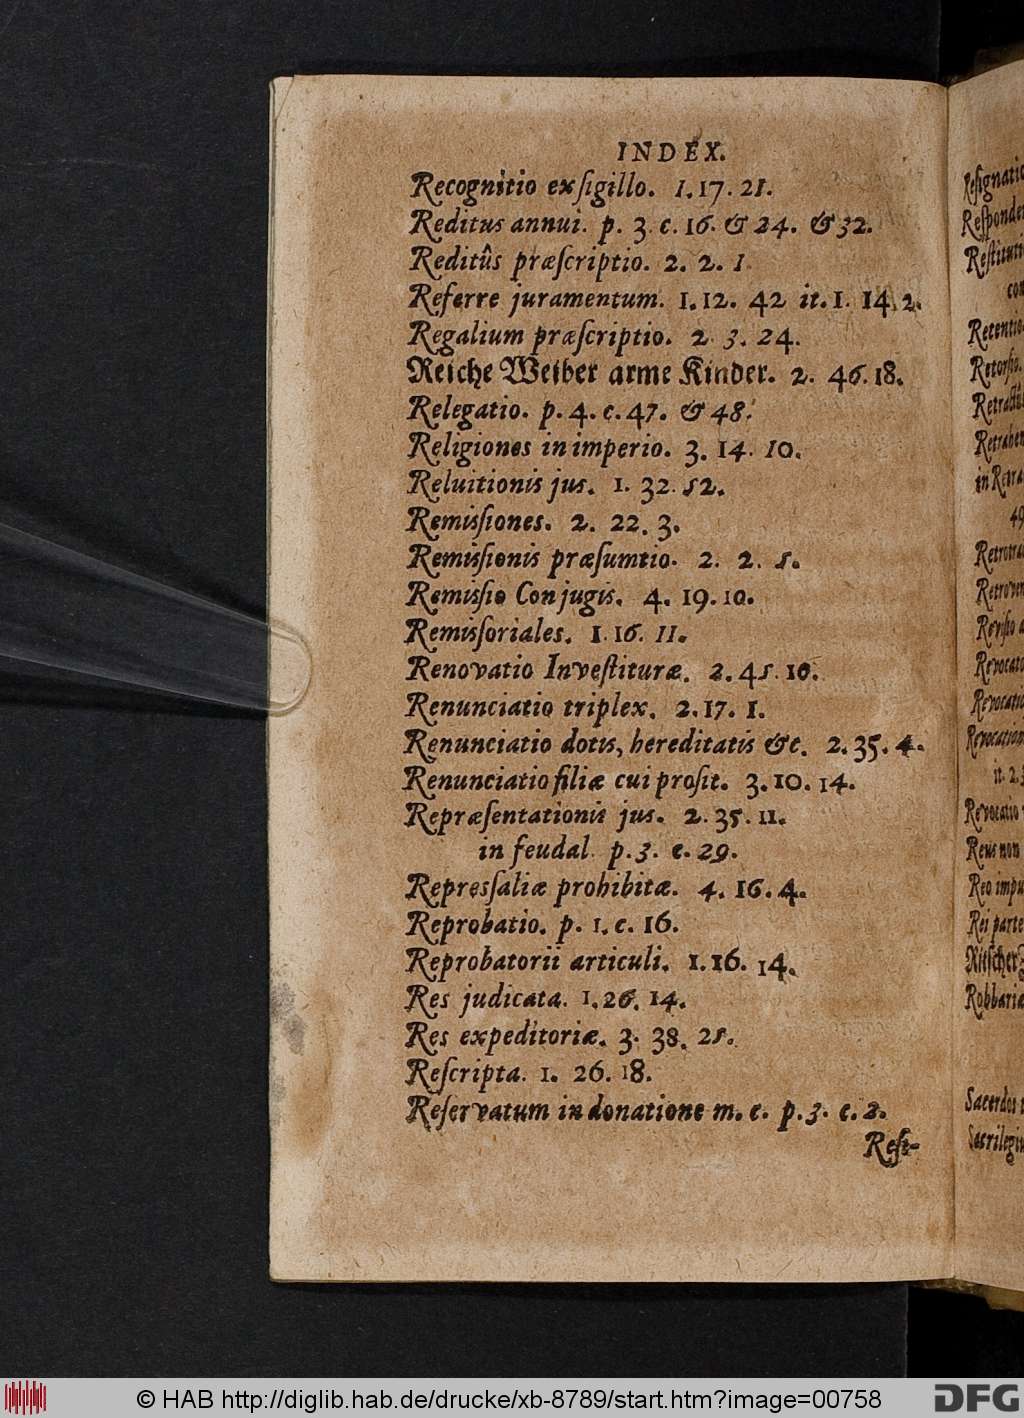 INDEX.
Recognitio ex ſigillo. 1. 17. 21.
Reditus annui. p. 3. c. 16. & 24. & 32.
Reditûs præſcriptio. 2. 2. 1
Referre juramentum. 1. 12. 42 it. 1. 14. 2.
Regalium præſcriptio. 2. 3. 24.
Reiche Weiber arme Kinder. 2. 46. 18.
Relegatio. p. 4. c. 47. & 48.
Religiones in imperio. 3. 14. 10.
Reluitionis jus. 1. 32. 52.
Remiſſiones. 2. 22. 3.
Remiſſionis præſumtio. 2. 2. 5.
Remiſſio Conjugis. 4. 19. 10.
Remiſſoriales. 1. 16. 11.
Renovatio Inveſtituræ. 2. 45. 10.
Renunciatio triplex. 2. 17. 1.
Renunciatio dotis, hereditatis &c. 2. 35. 4.
Renunciatio filiæ cui proſit. 3. 10. 14.
Repræſentationis jus. 2. 35. 11.
in feudal. p. 3. c. 29.
Repreſſaliæ prohibitæ. 4. 16. 4.
Reprobatio. p. 1. c. 16.
Reprobatorii articuli. 1. 16. 14.
Res judicata. 1. 26. 14.
Res expeditoriæ. 3. 38. 25.
Reſcripta. 1. 26. 18.
Reſervatum in donatione m. c. p. 3. c. 2.
Reſi-
© HAB http://diglib.hab.de/drucke/xb-8789/start.htm?image=00758
DFG